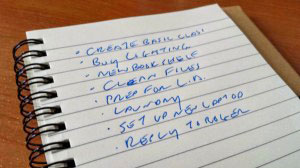 · CREATE BASIC CLASS
· BUY LIGHTING
· NEW BOOKSHELF
· CLEAN FILES
· PREP FOR L.A.
· LAUNDRY
· SET UP NEW LAPTOP
· REPLY TO ROGER